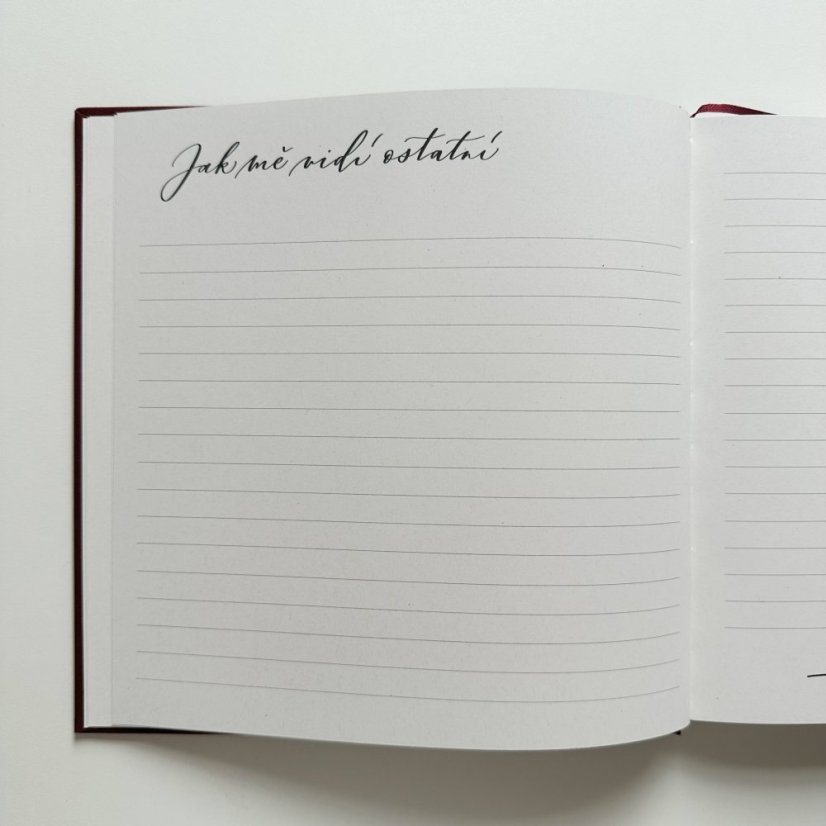 Jak mě vidí ostatní